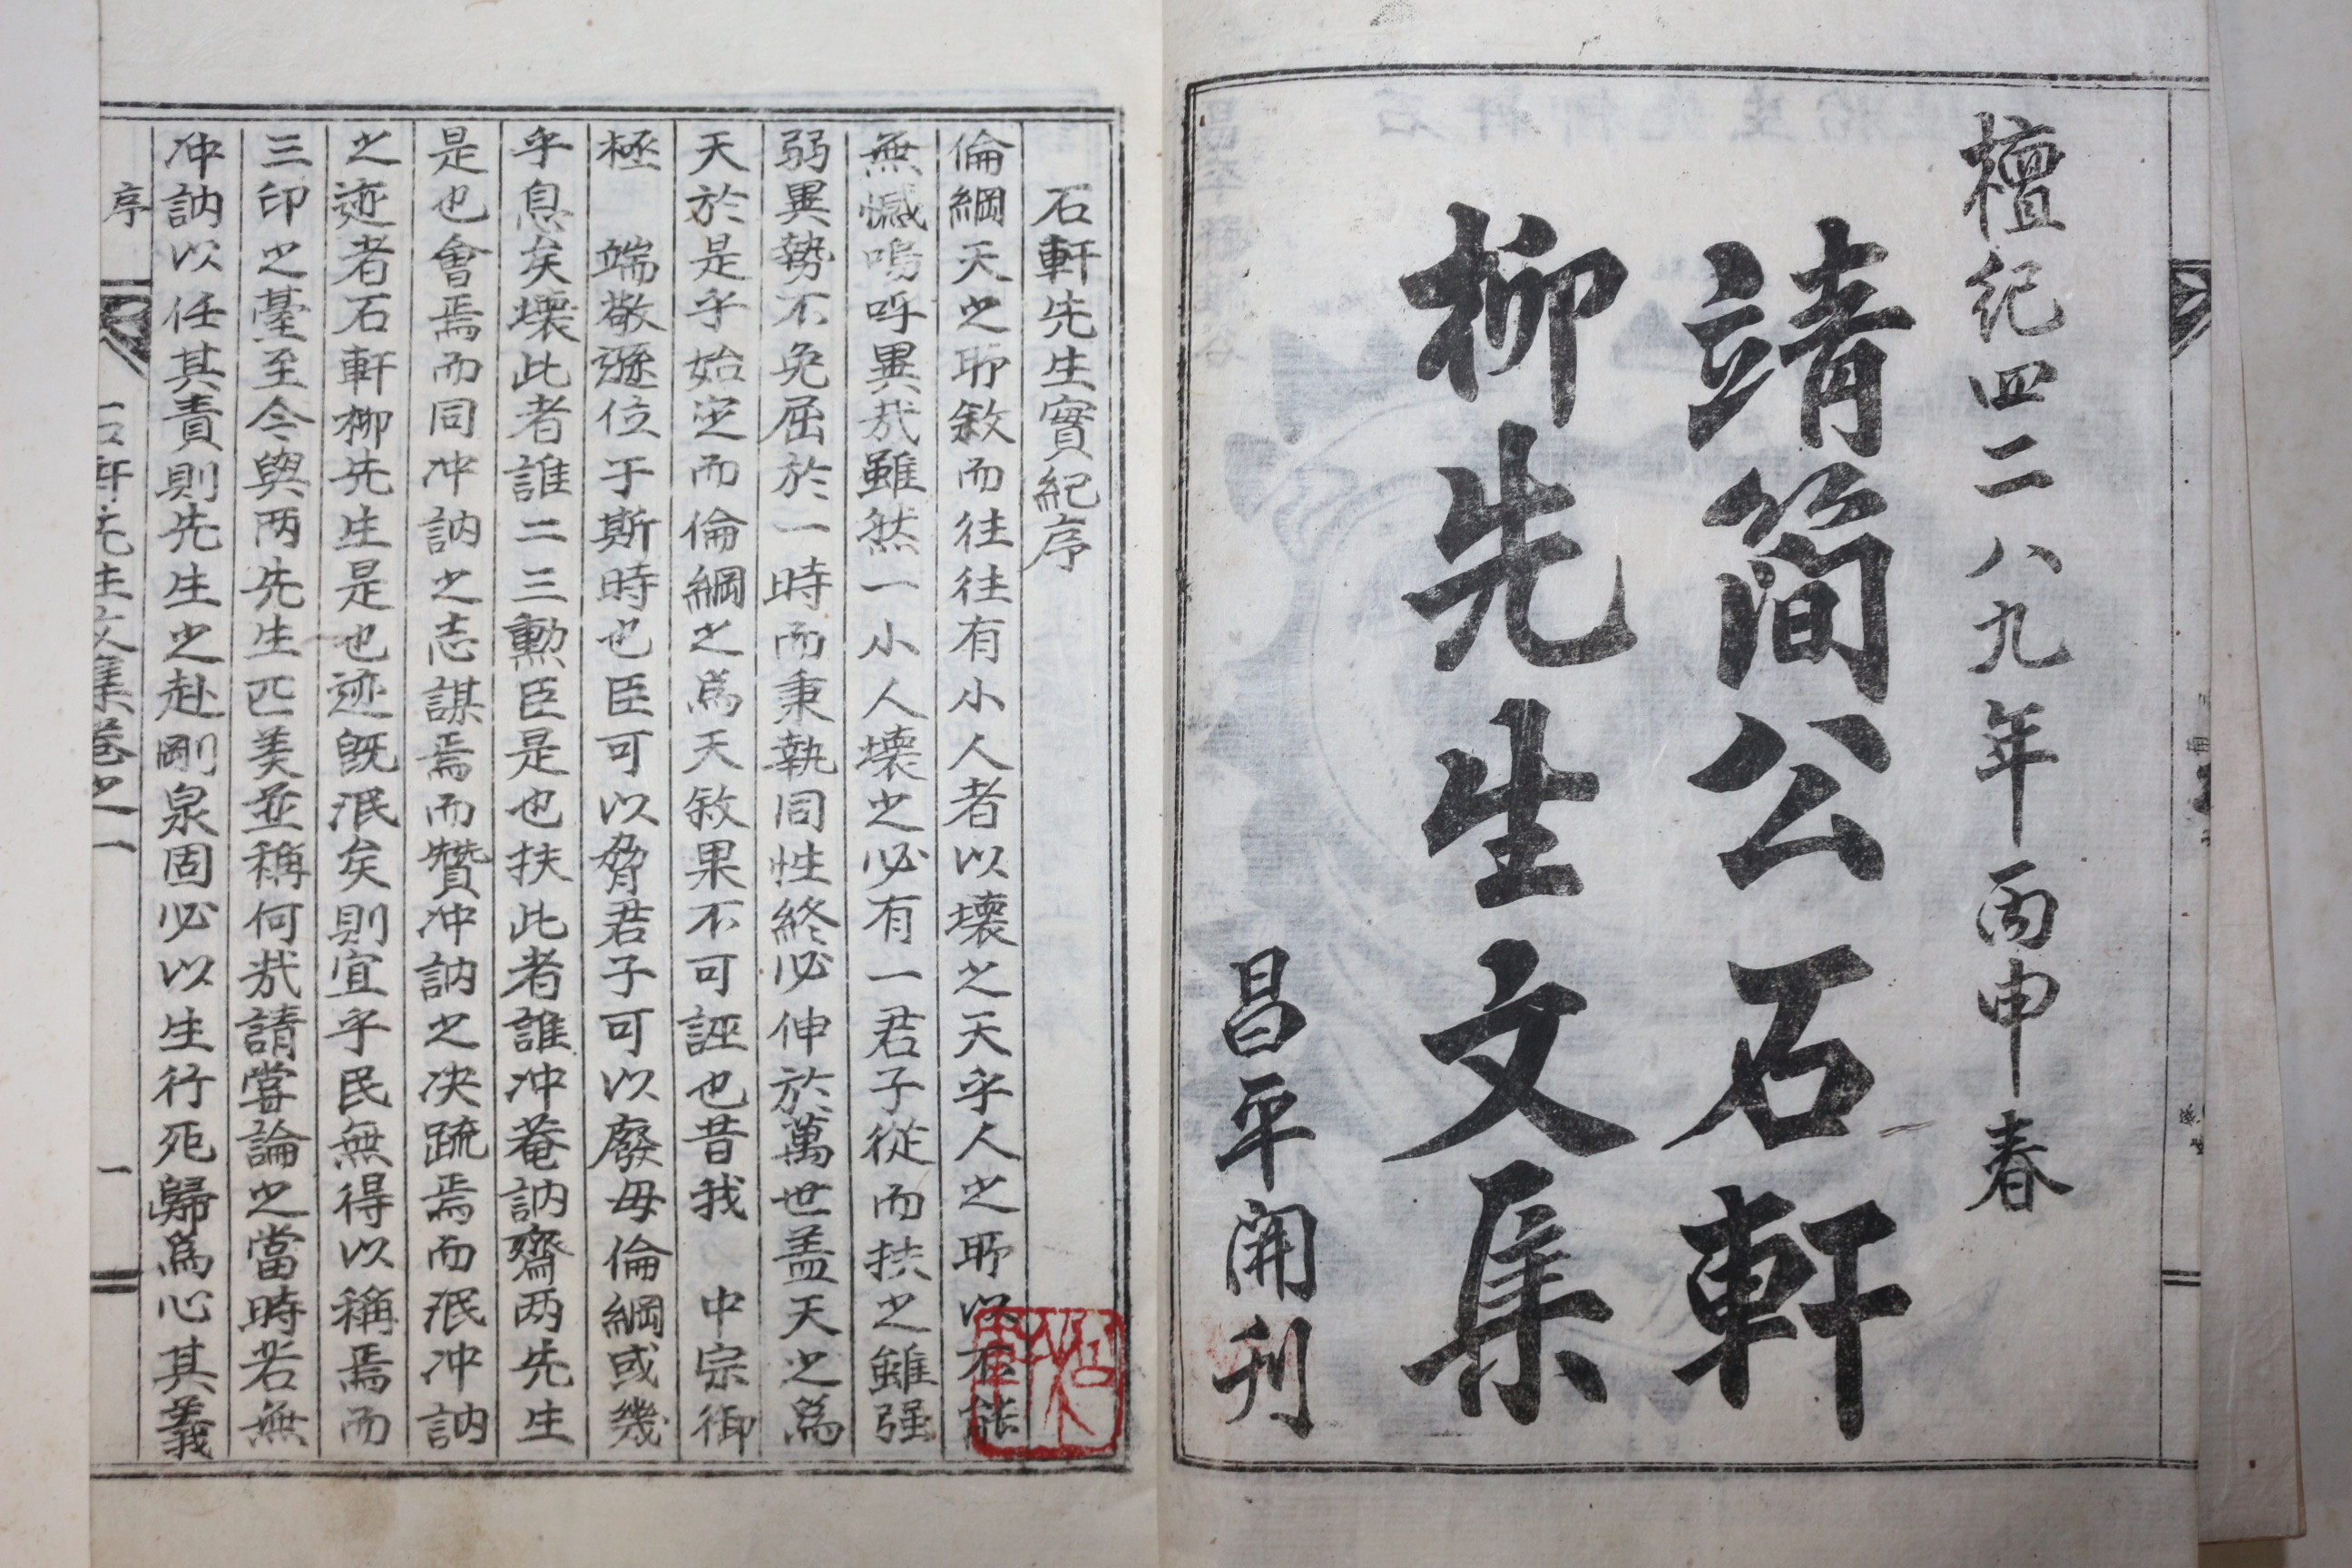 檀紀四二八九年丙申春
靖簡公石軒
柳先生文集
昌平開刊
石軒先生實紀序
倫綱天之所敘而往往有小人者以壞之天乎人之所以不能
無憾嗚呼異哉雖然一小人壞之必有一君子從而扶之雖强
弱異勢不免屈於一時而秉執同性終必伸於萬世盖天之爲
天於是乎始定而倫綱之爲天敘果不可誣也昔我 中宗御
極 端敬遜位于斯時也臣可以脅君子可以廢母倫綱或幾
乎息矣壞此者誰二三勳臣是也扶此者誰冲菴訥齋两先生
是也會焉而同冲訥之志謀焉而贊冲訥之决疏焉而泯冲訥
之迹者石軒柳先生是也迹旣泯矣則宜乎民無得以稱焉而
三印之臺至今與两先生匹美並稱何哉請嘗論之當時若無
冲訥以任其責則先生之赴剛泉固必以生行死歸爲心其義
序
石軒先生文集卷之一
一